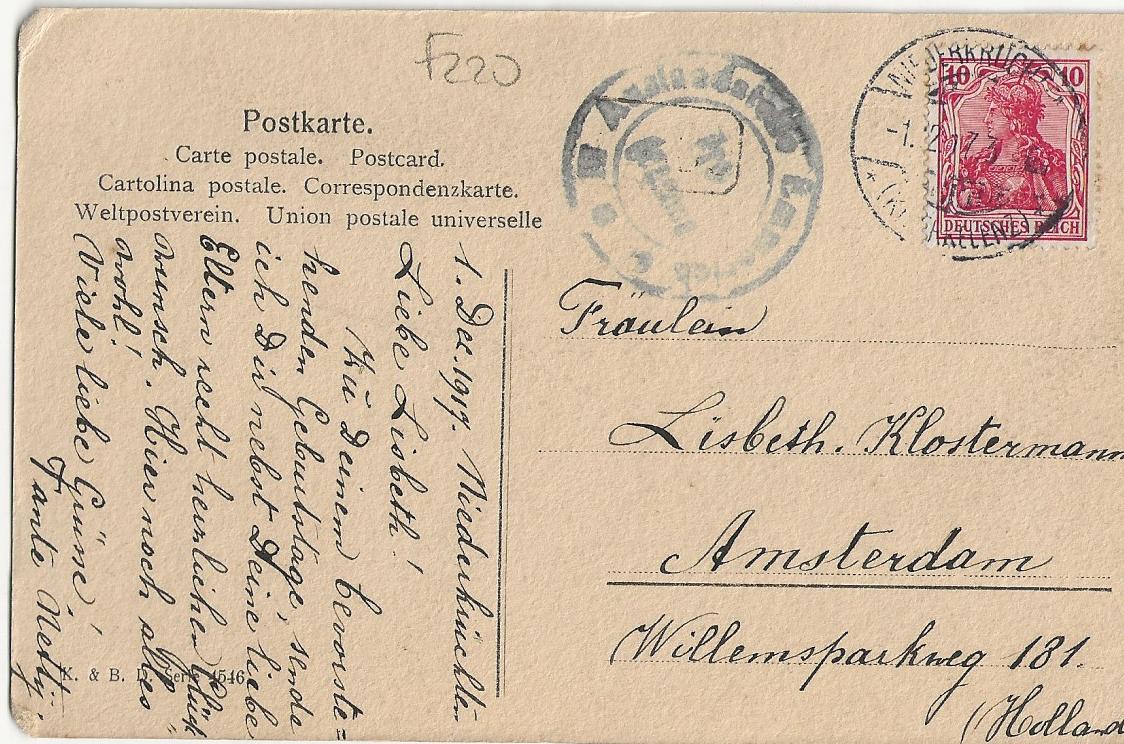 F220
Postkarte.
Carte postale. Postcard.
Cartolina postale. Correspondenzkarte.
Weltpostverein. Union postale universelle
Auslandstelle Emmerich
10 10
DEUTSCHES REICH
1. Dez. 1917. Niederkrüchten
Liebe Lisbeth!
Zu Deinem bevorste=
henden Geburtstage, sende
ich Dir nebst Deine liebe
Eltern recht herzlichen Glück
wunsch. Hier noch alles
wohl!
Viele liebe Grüne!
Tante Netty.
Fräulein
Lisbeth. Klostermann
Amsterdam
Willemsparkweg 181.
(Holland
K. & B. D. Serie 1546